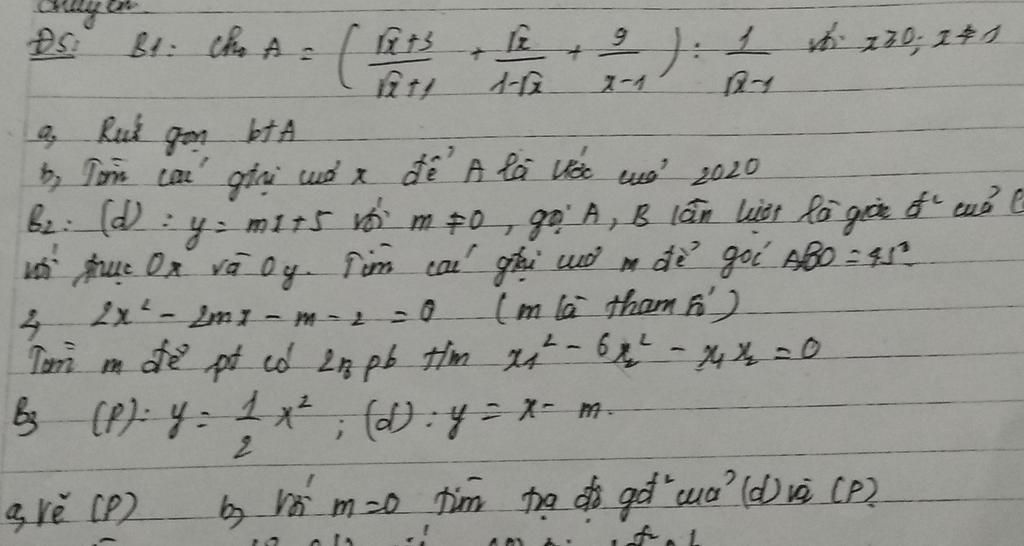 chuyên
Đ5: B1: Cho A = ( (√x+3)/(√x+1) + √x/(1-√x) + 9/(x-1) ) : 1/(√x-1) với x≥0; x≠1
a, Rút gọn bt A
b, Tìm các gtrị của x để A là ước của 2020
B2: (d): y = mx+5 với m ≠0, gọi A, B lần lượt là giao đ² của
với trục Ox và Oy. Tìm các gtrị của m để góc ABO = 45°
2, 2x² - 2mx - m - 2 = 0 (m là tham số)
Tìm m để pt có 2n pb t/m x₁² - 6x₂² - x₁x₂ = 0
B3 (P): y = 1/2 x²; (d): y = x - m.
a, vẽ (P) b, Với m=0 tìm tọa độ gđ² của (d) và (P)